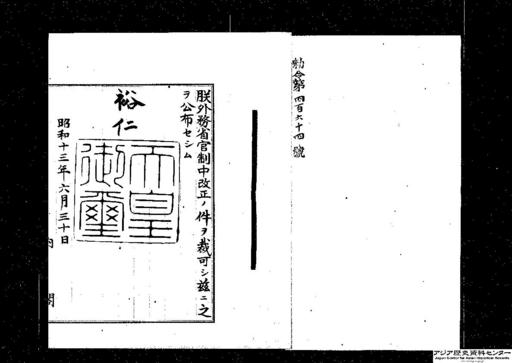 勅令第四百六十四號
朕外務省官制中改正ノ件ヲ裁可シ茲ニ之
ヲ公布セシム
裕仁
天皇
御璽
昭和十三年六月三十日
内閣
アジア歴史資料センター
Japan Center for Asian Historical Records